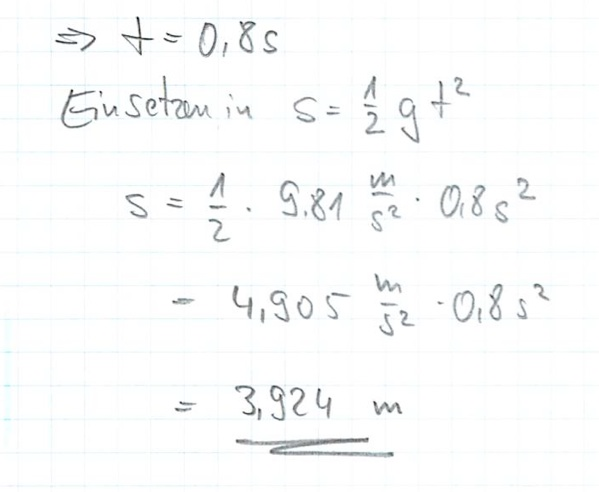 ⇒ t = 0,8s
Einsetzen in s = 1/2 g t²
s = 1/2 · 9.81 m/s² · 0,8s²
= 4,905 m/s² · 0,8s²
= 3,924 m